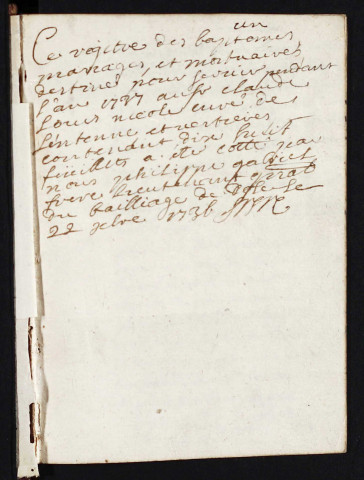 un
Ce rejitre des baptemes
mariages, et mortuaires
destiné pour servir pendant
l'an 1737 au sr claude
Louis nicole curé de
et
contenant dix huit
feuillets a été cotté par
nous philippe gabriel
frere lieutenant gnral
du bailliage de ce
22 xbre 1736